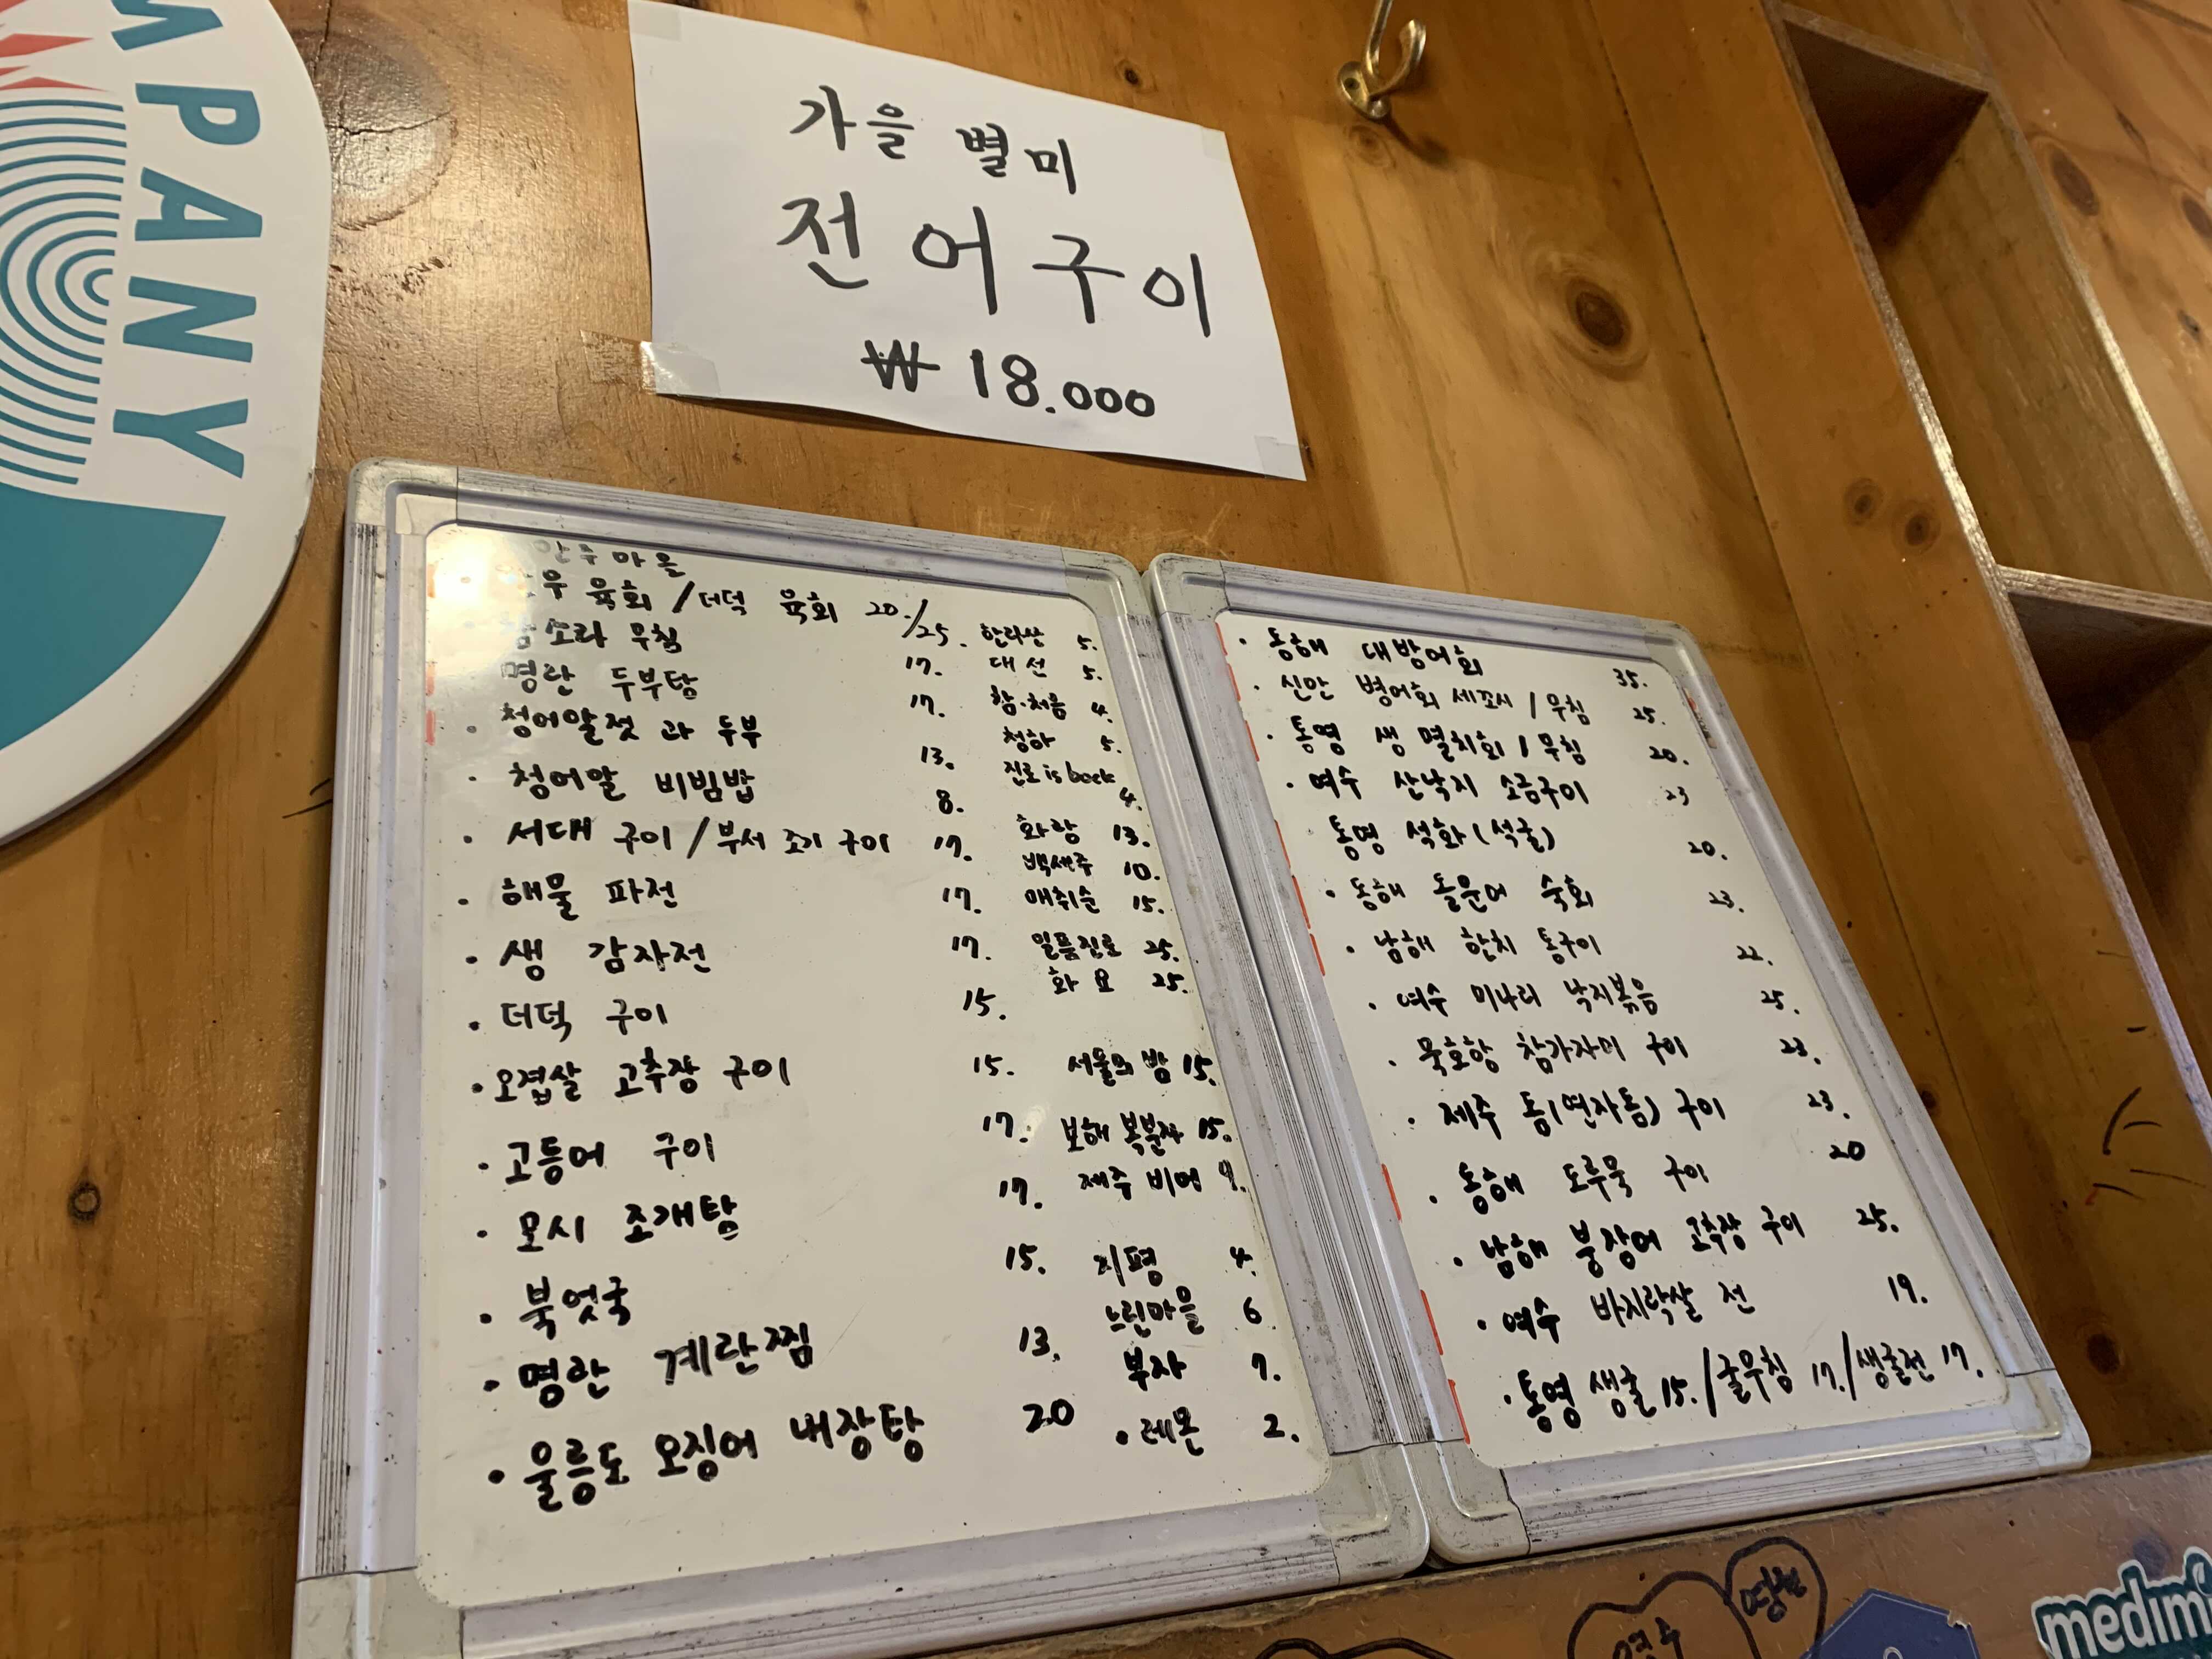 MPANY
가을 별미
전어구이
₩ 18.000
안주마을
우 육회 / 더덕 육회 20./25.
참소라 무침 17.
명란 두부탕 17.
· 청어알젓 과 두부 13.
· 청어알 비빔밥 8.
· 서대 구이 / 부서 조기 구이 17.
· 해물 파전 17.
· 생 감자전 17.
· 더덕 구이 15.
· 오겹살 고추장 구이 15.
· 고등어 구이 17.
· 모시 조개탕 17.
· 북엇국 15.
· 명란 계란찜 13.
· 울릉도 오징어 내장탕 20
한라산 5.
대선 5.
참·처음 4.
청하 5.
진로 is back 4.
화랑 13.
백세주 10.
매취순 15.
일품진로 25.
화요 25.
서울의 밤 15.
보해 복분자 15.
제주 비어
지평 4.
느린마을 6
부자 7.
· 레몬 2.
· 동해 대방어회 35.
· 신안 병어회 세꼬시 / 무침 25.
· 통영 생 멸치회 / 무침 20.
· 여수 산낙지 소금구이 23
통영 석화(석굴) 20.
· 동해 돌문어 숙회 23.
· 남해 한치 통구이 22.
· 여수 미나리 낙지볶음 25.
· 묵호항 참가자미 구이 23.
· 제주 돔(연자돔) 구이 23.
· 동해 도루묵 구이 20
· 남해 붕장어 고추장 구이 25.
· 여수 바지락살 전 19.
· 통영 생굴 15. / 굴무침 17. / 생굴전 17.